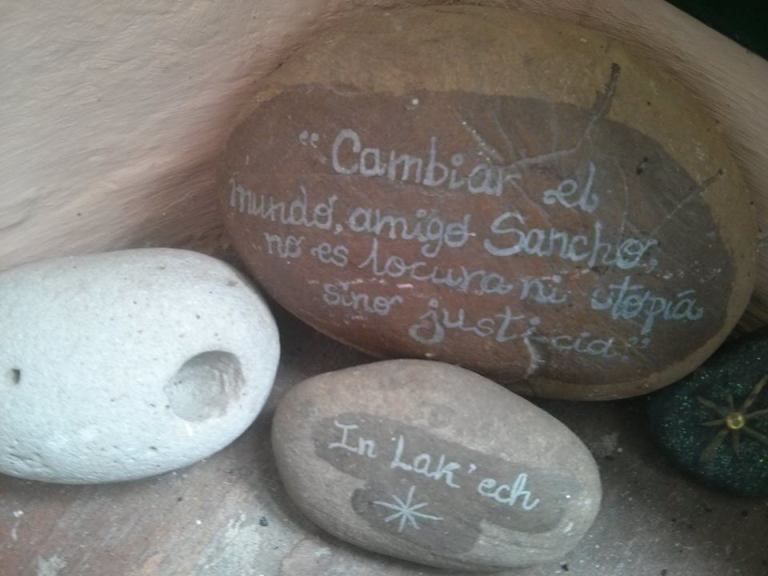 "Cambiar el
mundo, amigo Sancho,
no es locura ni utopía
sino justicia."
In Lak'ech